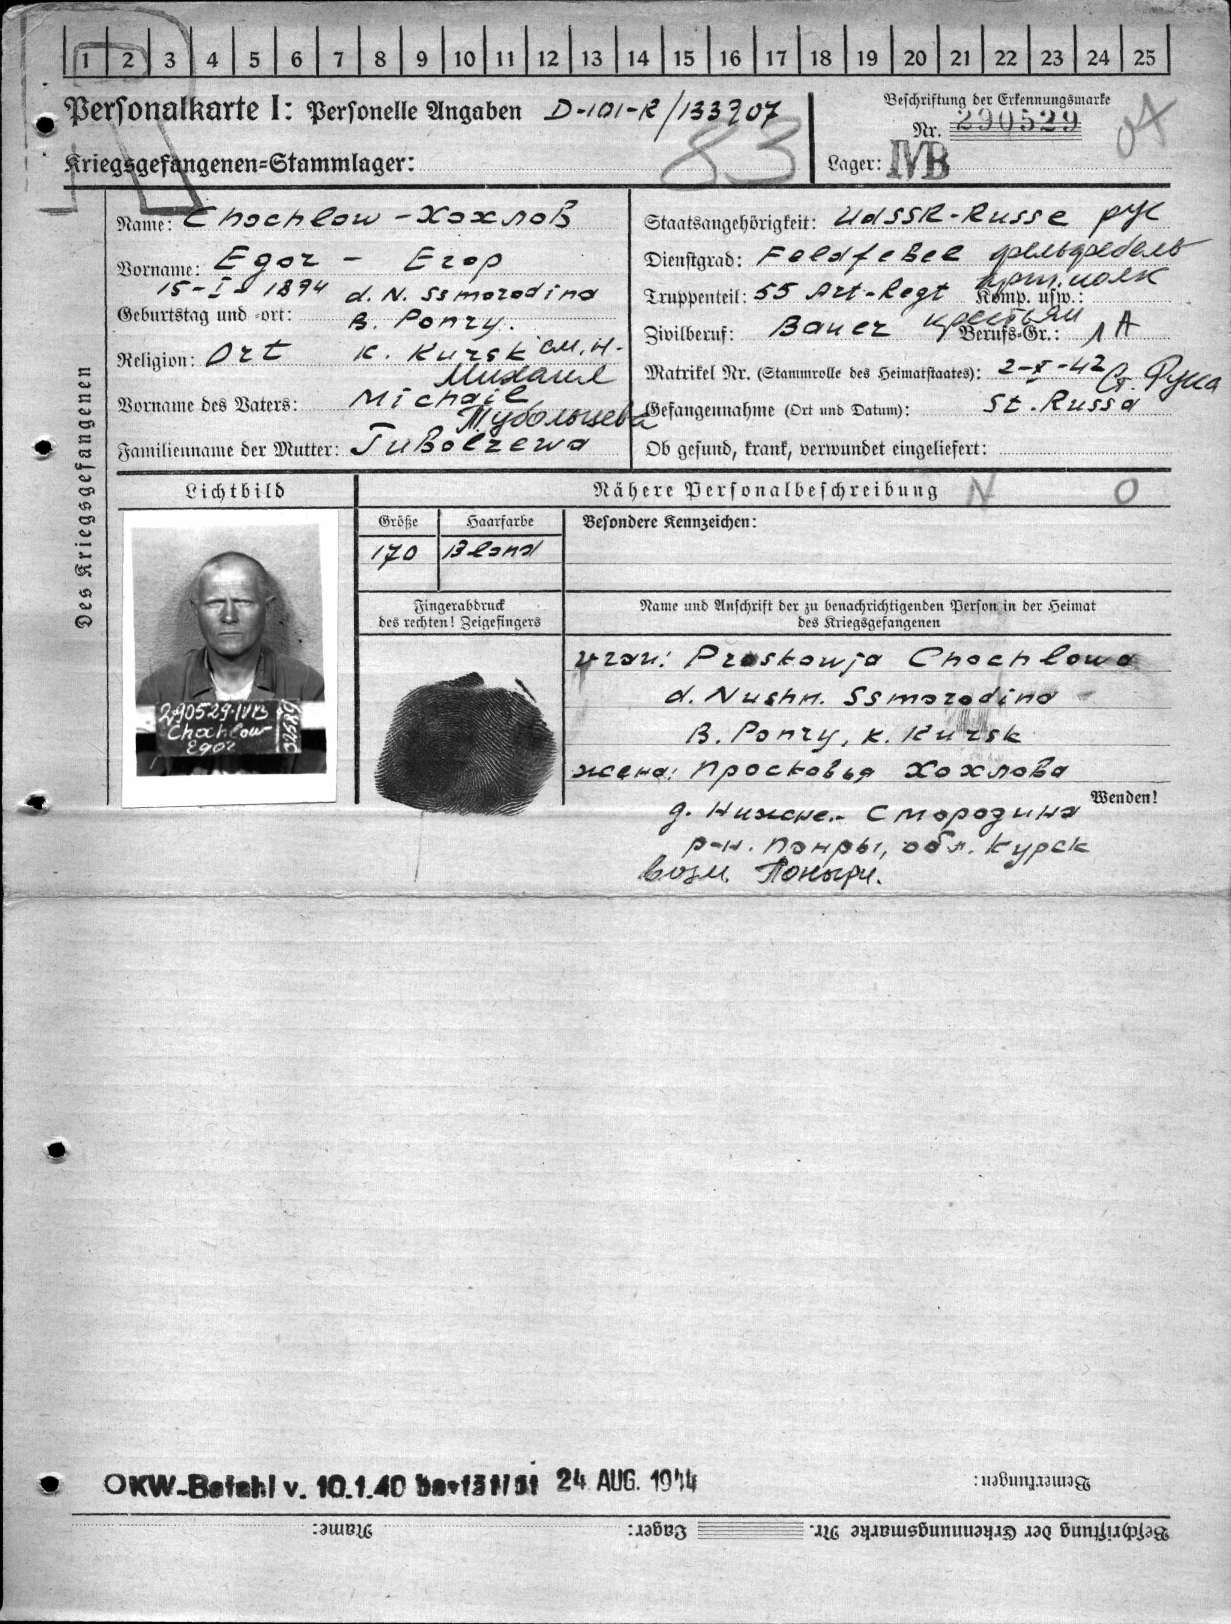 1 2 3 4 5 6 7 8 9 10 11 12 13 14 15 16 17 18 19 20 21 22 23 24 25
Personalkarte I: Personelle Angaben D-101-R/133707
Kriegsgefangenen=Stammlager: 83
Beschriftung der Erkennungsmarke
Nr. 290529
Lager: IVB
Des Kriegsgefangenen
Name: Chochlow - Хохлов
Vorname: Egor - Егор
Geburtstag und -ort: 15-I-1894 d. N. Ssmorodino
B. Ponry.
Religion: Ort K. Kursk см. н.
Михаил
Vorname des Vaters: Michail
Тубольцева
Familienname der Mutter: Tubolzewa
Staatsangehörigkeit: UdSSR-Russe рус
Dienstgrad: Feldfebel фельдфебель
арт. полк
Truppenteil: 55 Art-Regt Komp. usw.:
Zivilberuf: Bauer крестьян Berufs-Gr.: 1A
Matrikel Nr. (Stammrolle des Heimatstaates): 2-X-42
Ст. Русса
Gefangennahme (Ort und Datum): St. Russa
Ob gesund, krank, verwundet eingeliefert:
Lichtbild
Nähere Personalbeschreibung N O
Größe Haarfarbe Besondere Kennzeichen:
170 Blond
Fingerabdruck
des rechten! Zeigefingers
Name und Anschrift der zu benachrichtigenden Person in der Heimat
des Kriegsgefangenen
Praskowja Chochlowa
d. Nushn. Ssmorodino
B. Ponry, K. Kursk
жена: Просковья Хохлова
д. Нижне.- Смородина
р-н. Понры, обл. Курск
возм. Поныри.
290529·IVB
Chochlow
Egor
Wenden!
OKW-Befehl v. 10.1.40 bestätigt 24 AUG. 1944
Bemerkungen:
Beschriftung der Erkennungsmarke Nr. Lager: Name: